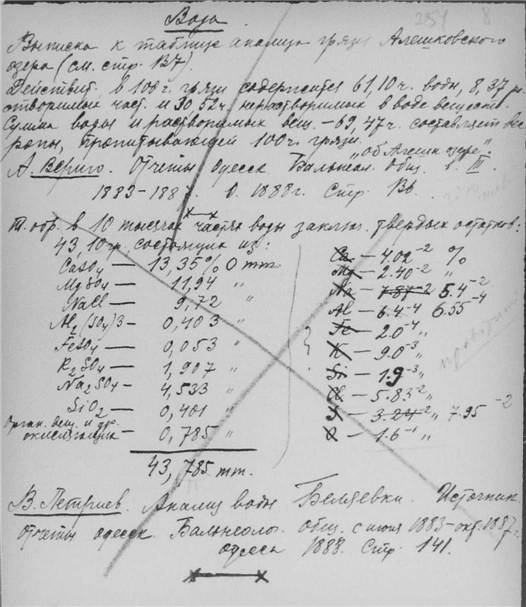 Вода
251 8
Выписка к таблице анализа грязи Алешковского
озера (см. стр. 137).
Действит. в 100 г. грязи содержится 61,10 г. воды, 8,37 ра
створимых част. и 30,52 г. нерастворимых в воде веществ.
Сумма воды и растворимых вещ. - 69,47 г. составляет вес
рапы, пропитывающей 100 г. грязи.
„Об Алешк. озере"
А. Вериго. Отчеты Одесск. Бальнеол. общ. т. III.
1883-1887. О. 1888 г. Стр. 136.
Т. обр. в 10 тысячах частях воды заключ. твердых остатков:
43,10 гр., состоящих из:
CaSO4 — 13,35 % 0 mm.
MgSO4 — 11,94 "
NaCl — 9,72 "
Al2(SO4)3 - 0,403 "
FeSO4 — 0,053 "
K2SO4 — 1,907 "
Na2SO4 - 4,533 "
SiO2 — 0,401 "
Орган. вещ. и др.
окисляющ. — 0,785 "
43,785 mm.
Ca — 4.02 -2 %
Mg — 2.40 -2 "
Na — 7.87 -2 5.4 -2
Al — 6.4 -4 6.55 -4
Fe — 2.0 -4 "
K — 9.0 -3 "
Si — 1.9 -3 "
Cl — 5.83 -2 "
S — 3.24 -2 " 7.95 -2
O — 1.6 -1 "
В. Петриев. Анализ воды Беляевки. Источник
отчеты одесск. Бальнеолог. общ. с июня 1883-окт. 1887.
Одесса 1888. Стр. 141.